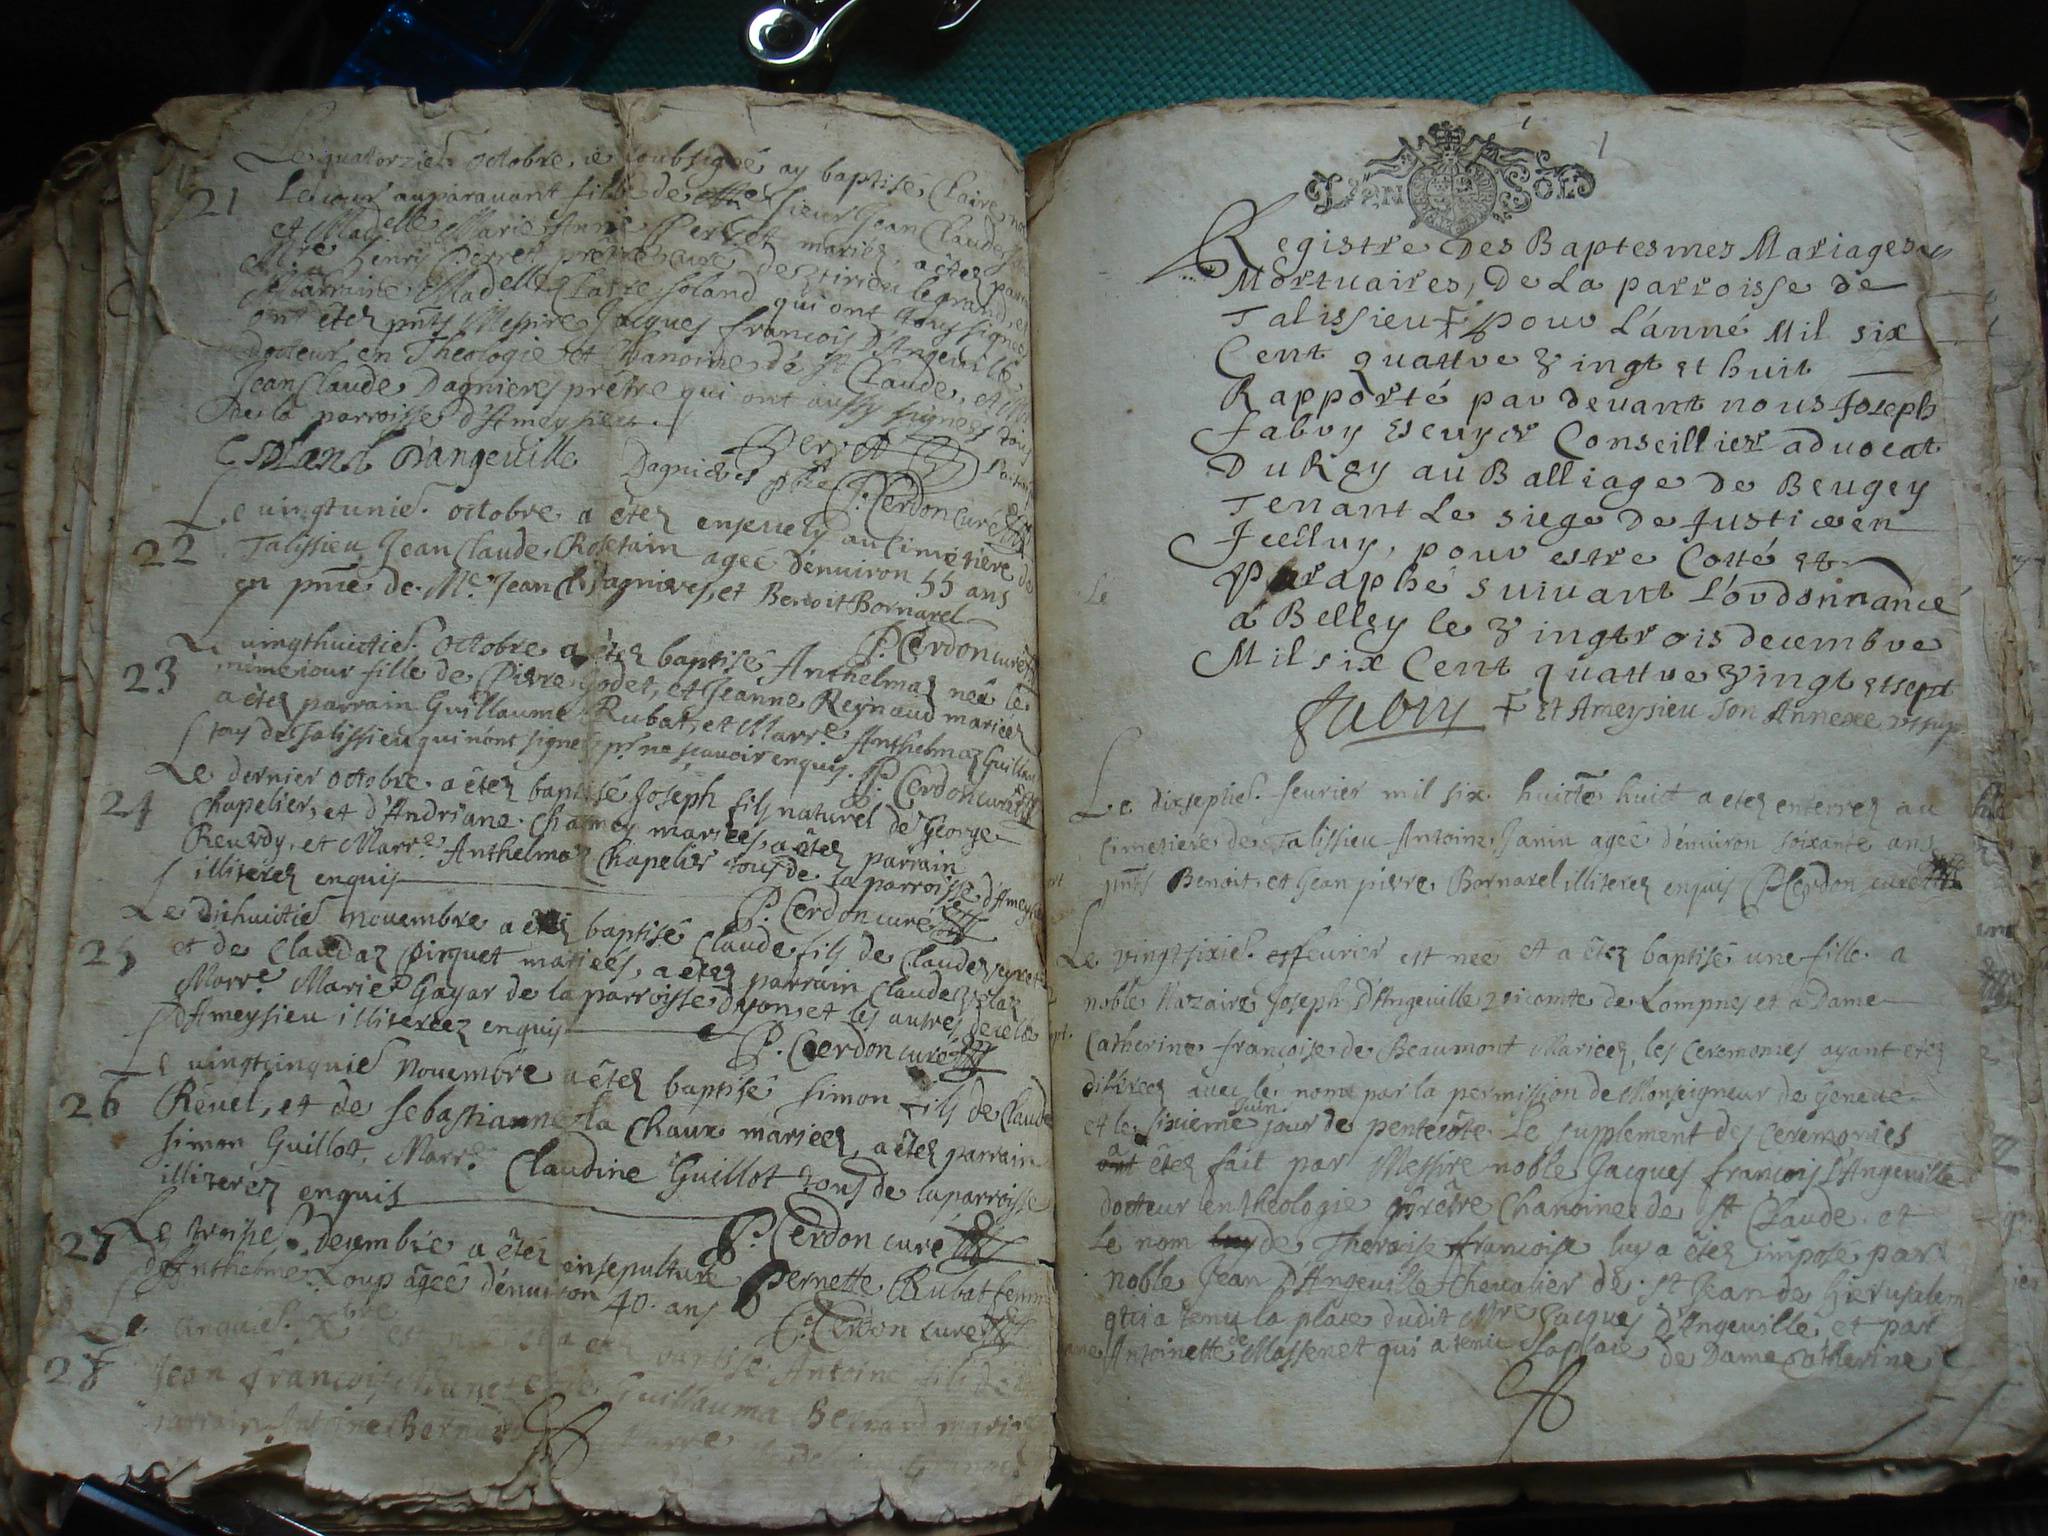 Le quatorzie. octobre ie soubsigné ay baptisé Claire
21 Le iour auparauant fille de sieur Jean Claude
et Madelle Marie Anne Perret mariez, a étez
Mre henry Perret prêtre curé de le grand, et
Marraine Madelle Claire Soland qui ont tous signez
ont étez pnts Messire Jacques francois D'Angeuille
Docteur en Theologie et Chanoine de St Claude, et
Jean Claude Dagnieres prêtre qui ont aussy signez tous
de la parroisse d'Ameysieu
C Soland Dangeuille Perret
Dagnieres pbre P. Cerdon curé
Le uingtunie. octobre a étez enseuely au cimetière de
22 Talissieu Jean Claude Rosetain ageé d'enuiron 55 ans
en pnce de Me. Jean Cl. Dagnieres, et Benoit Bornarel
P. Cerdon curé
Le uingthuictie. octobre a étez baptisé Anthelmaz neé le
23 même iour fille de Pierre Godet, et Jeanne Reynaud mariéez
a étez parrain Guillaume Rubat, et Marre. Anthelmaz
tous de Talissieu qui n'ont signez pr. ne scauoir enquis.
P. Cerdon curé
Le dernier octobre a étez baptisé Joseph fils naturel de George
24 Chapelier, et d'Andriane Charney marieés, a étez parrain
Reuerdy, et Marre. Anthelmaz Chapelier tous de la parroisse d'Ameysieu
illiterez enquis
P. Cerdon curé
Le dixhuictie. Nouembre a étez baptisé Claude fils de Claude
25 et de Claudaz Pirquet marieés, a étez parrain Claude
Marre. Marie Gayar de la parroisse et les autres de celle
d'Ameysieu illitereez enquis
P. Cerdon curé
Le uingtcinquie. Nouembre a étez baptisé Simon fils de Claude
26 Reuel, et de Sebastianne la Chaux marieez, a étez parrain
Simon Guillot, Marre. Claudine Guillot tous de la parroisse
illiteréz enquis
P. Cerdon curé
27 Le treisie. Decembre a étéz ensepulturé Pernette Rubat femme
d'Anthelme Loup ageé d'enuiron 40. ans
P. Cerdon curé
Le cinquie. Xbre a étez baptisé Antoine fils de
28 Jean francois Guillauma Bernard mariez
parrain Antoine Bernard Marre
UN SOL
1
Registre Des Baptesmes Mariages
Mortuaires, De La parroisse de
Talissieu + pour L'anné Mil six
Cent quattre Vingt et huit
Rapporté par deuant nous Joseph
Fabry Escuyer Conseillier aduocat
Du Roy au Balliage de Beugey
Tenant Le siege de Justice en
Jcelluy, pour estre Cotté et
Paraphé suiuant L'ordonnance
á Belley le Vingtrois decembre
Mil six Cent quattre Vingt et sept
Fabry + Et Ameysieu son Annexe
Le dixseptie. feurier mil six huicte huict a étez enterrez au
Cimetiére de Talissieu Antoine Janin ageé d'enuiron soixante ans
pnts Benoit, et Jean pierre Bornarel illiterez enquis P. Cerdon curé
Le vingtsixie. feurier est neé et a étez baptisé une fille a
noble Nazaire Joseph D'Angeuille Vicomte de Lompnes et a Dame
Catherine francoise de Beaumont Mariéez, les Ceremonies ayant étez
differez auec le nom par la permission de Monseigneur de Geneue
et le sixieme Juin jour de pentecôte Le supplement des Ceremonies
a étez fait par Messire noble Jacques francois D'Angeuille
docteur en theologie prêtre Chanoine de St Claude et
Le nom de Theroise francoise luy a étez imposé par
noble Jean D'Angeuille Cheualier de St Jean de Hierusalem
qui a tenu la place dudit Mre Jacques d'Angeuille et par
Dame Antoinette de Massenet qui a tenu la place de Dame Catherine